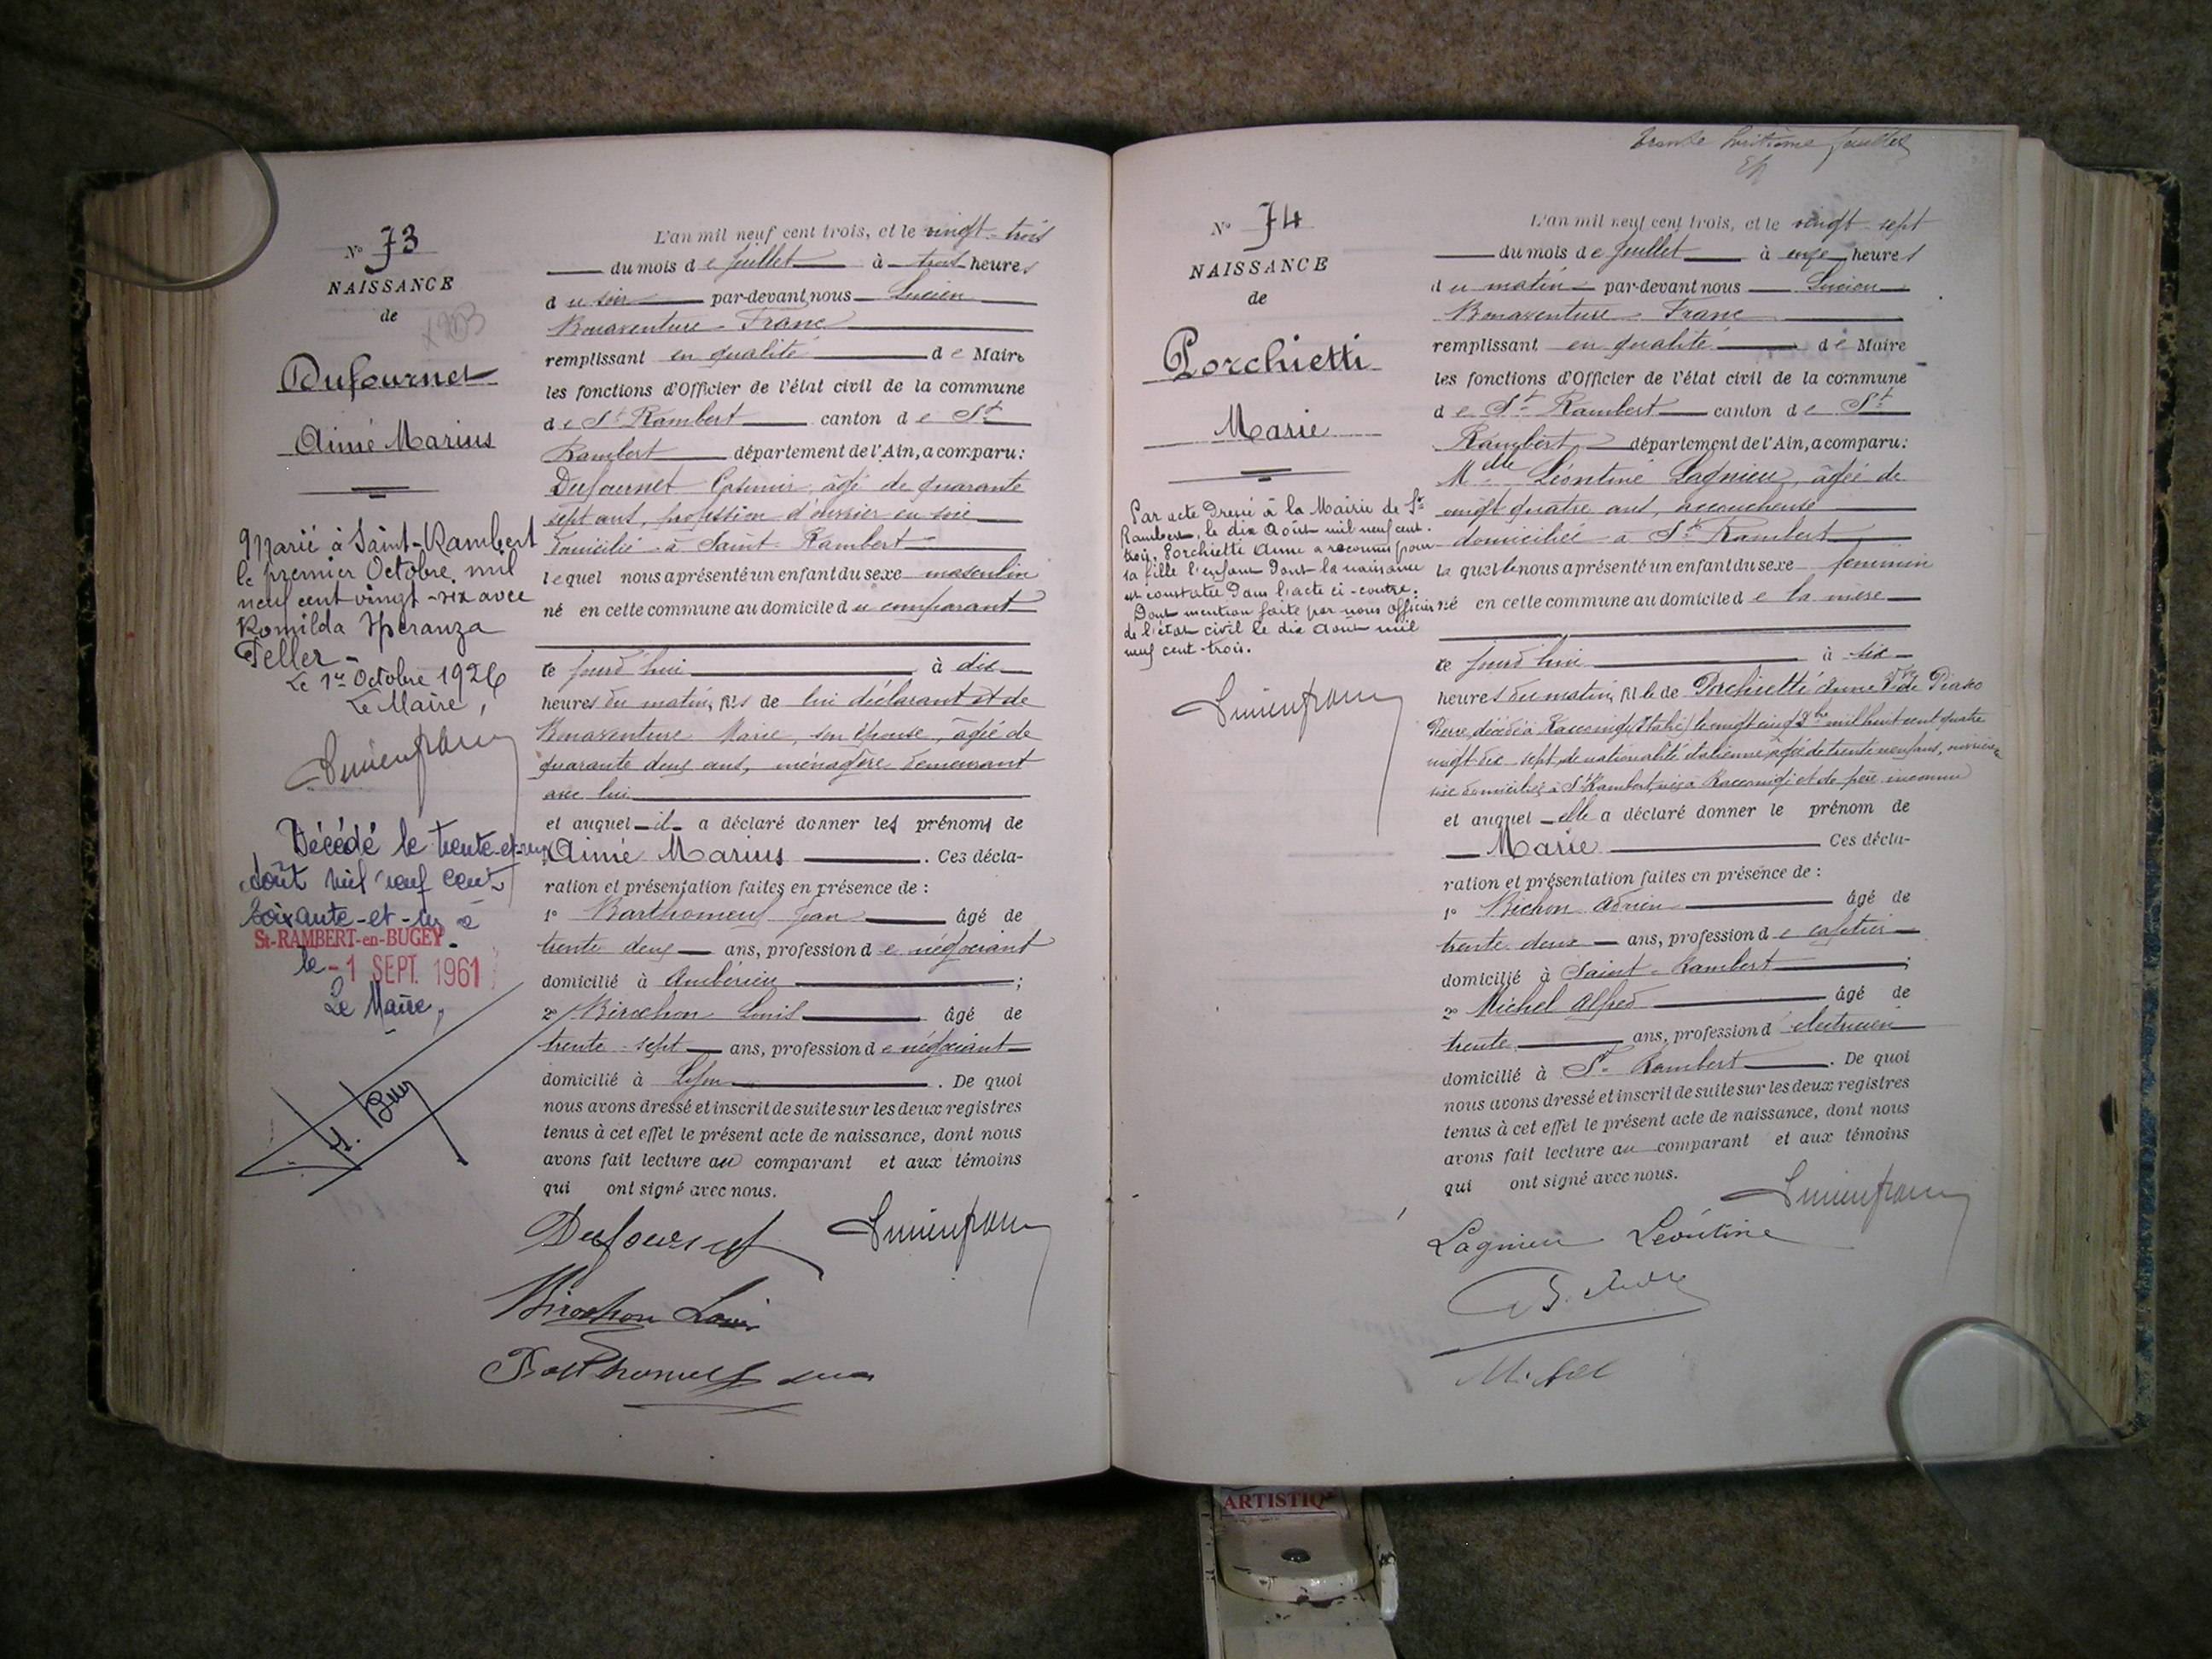 N° 73
NAISSANCE
de
Dufournet
Aimé Marius
Marié à Saint-Rambert
le premier Octobre mil
neuf cent vingt-six avec
Romilda Speranza
Feller
Le 1er Octobre 1926
Le Maire,
Lucien franc
Décédé le trente-et-un
Août mil neuf cent
soixante-et-un à
St-RAMBERT-en-BUGEY.
le -1 SEPT. 1961
Le Maire,
L'an mil neuf cent trois, et le vingt-trois
du mois de Juillet à trois heures
du soir par-devant nous Lucien
Bonaventure Franc
remplissant en qualité de Maire
les fonctions d'Officier de l'état civil de la commune
de St Rambert canton de St
Rambert département de l'Ain, a comparu:
Dufournet Casimir, âgé de quarante
sept ans, profession d'ouvrier en soie
domicilié à Saint-Rambert
lequel nous a présenté un enfant du sexe masculin
né en cette commune au domicile du comparant
ce jourd'hui à dix
heures du matin, fils de lui déclarant et de
Bonaventure Marie, son épouse, âgée de
quarante deux ans, ménagère demeurant
avec lui
et auquel il a déclaré donner les prénoms de
Aimé Marius . Ces décla-
ration et présentation faites en présence de :
1° Barthomeuf Jean âgé de
trente deux ans, profession de négociant
domicilié à Ambérieu ;
2° Birochon Louis âgé de
trente-sept ans, profession de négociant
domicilié à Lyon . De quoi
nous avons dressé et inscrit de suite sur les deux registres
tenus à cet effet le présent acte de naissance, dont nous
avons fait lecture au comparant et aux témoins
qui ont signé avec nous.
Dufournet Lucien franc
Birochon Louis
Barthomeuf
trente huitième feuillet
N° 74
NAISSANCE
de
Porchietti
Marie
Par acte dressé à la Mairie de St
Rambert, le dix Août mil neuf cent
trois, Porchietti Anne a reconnu pour
sa fille l'enfant dont la naissance
est constatée dans l'acte ci-contre.
Dont mention faite par nous officier
de l'état civil le dix Août mil
neuf cent trois.
Lucien franc
L'an mil neuf cent trois, et le vingt-sept
du mois de Juillet à onze heures
du matin par-devant nous Lucien
Bonaventure Franc
remplissant en qualité de Maire
les fonctions d'Officier de l'état civil de la commune
de St Rambert canton de St
Rambert département de l'Ain, a comparu:
Melle Léontine Lagnieu, âgée de
vingt quatre ans, accoucheuse
domiciliée à St Rambert
laquelle nous a présenté un enfant du sexe féminin
né en cette commune au domicile de la mère
ce jourd'hui à six
heures du matin, fille de Porchietti Anne Vve de
Pierre, décédé à Racconigi (Italie) le vingt cinq 9bre mil huit cent quatre
vingt dix-sept, de nationalité italienne, âgée de trente neuf ans, ouvrière en
soie domiciliée à St Rambert, née à Racconigi et de père inconnu
et auquel elle a déclaré donner le prénom de
Marie Ces décla-
ration et présentation faites en présence de :
1° Bichon Adrien âgé de
trente deux ans, profession de cafetier
domicilié à Saint-Rambert ;
2° Michel Alfred âgé de
trente ans, profession d'électricien
domicilié à St Rambert . De quoi
nous avons dressé et inscrit de suite sur les deux registres
tenus à cet effet le présent acte de naissance, dont nous
avons fait lecture au comparant et aux témoins
qui ont signé avec nous.
Lucien franc
Lagnieu Léontine
Michel
ARTISTIQ